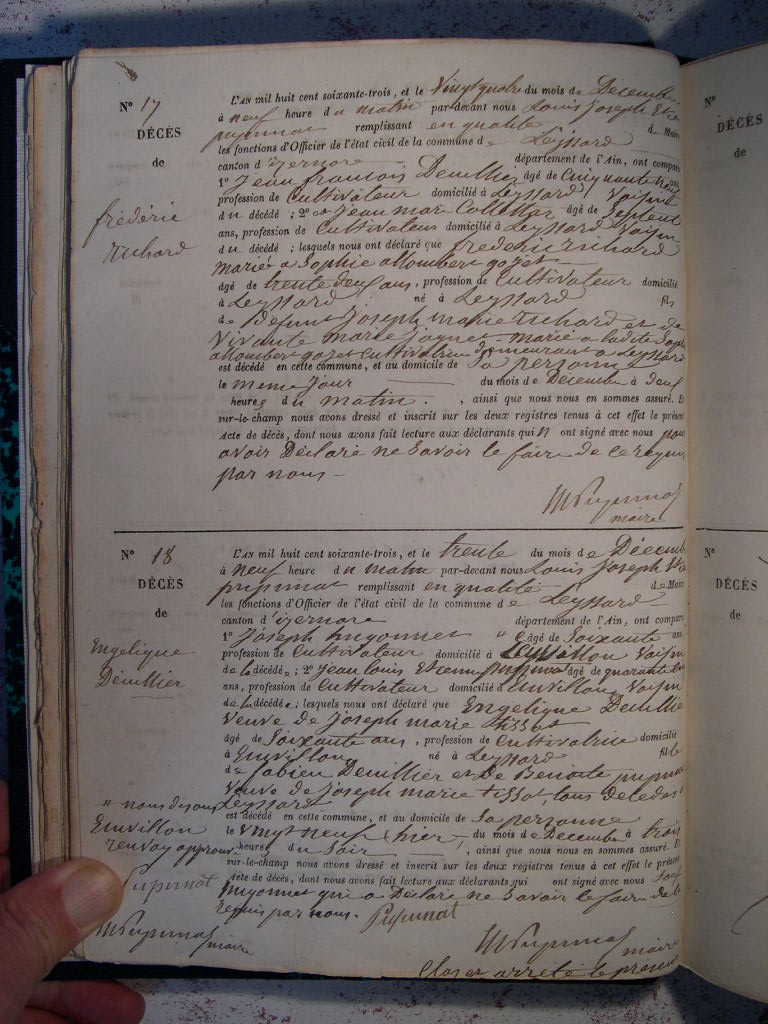 N° 17
DÉCÈS
de
frédéric
richard
L'AN mil huit cent soixante-trois, et le Vingt quatre du mois de Décembre
à neuf heure du matin par-devant nous Louis Joseph Etienne
pupunat remplissant en qualité de Maire
les fonctions d'Officier de l'état civil de la commune de Leyssard
canton d'izernore département de l'Ain, ont comparu
1° Jean francois Deuillier âgé de Cinquante neuf ans,
profession de Cultivateur domicilié à Leyssard Voisin
du décédé; 2° et Jean Marie Collettaz âgé de Septent
ans, profession de Cultivateur domicilié à Leyssard Voisin
du décédé; lesquels nous ont déclaré que frederic richard
marié a Sophie allombert gozet
âgé de trente deux ans, profession de Cultivateur domicilié
à Leyssard né à Leyssard fils
de Défunt Joseph marie richard et de
Vivante marie Joque marié a ladite Sophie
allombert gozet Cultivatrice demeurant a Leyssard
est décédé en cette commune, et au domicile de Sa personne
le meme Jour du mois de Décembre à deux
heures du matin, ainsi que nous nous en sommes assuré. Et
sur-le-champ nous avons dressé et inscrit sur les deux registres tenus à cet effet le présent
Acte de décès, dont nous avons fait lecture aux déclarants qui n'ont signé avec nous pour
avoir Déclaré ne Savoir le faire de ce requis
par nous
Pupunat
maire
N° 18
DÉCÈS
de
Engelique
Deuillier
L'AN mil huit cent soixante-trois, et le trente du mois de Décembre
à neuf heure du matin par-devant nous Louis Joseph Etienne
pupunat remplissant en qualité de Maire
les fonctions d'Officier de l'état civil de la commune de Leyssard
canton d'izernore département de l'Ain, ont comparu
1° Joseph hugonnet âgé de Soixante ans,
profession de Cultivateur domicilié à Voisin
de la décédée; 2° Jean louis Etienne pupunat âgé de quarante
ans, profession de Cultivateur domicilié à Emvillon Voisin
de la décédée; lesquels nous ont déclaré que Engelique Deuillier
Veuve de Joseph marie tissot
âgé de Soixante ans, profession de Cultivatrice domicilié
à Emvillon né à Leyssard fille
de fabien Deuillier et De Benoite pupunat
Veuve de Joseph marie tissot, tous décédés
Leyssard
est décédé en cette commune, et au domicile de Sa personne
le Vingt neuf hier, du mois de Décembre à trois
heures du Soir, ainsi que nous nous en sommes assuré. Et
sur-le-champ nous avons dressé et inscrit sur les deux registres tenus à cet effet le présent
Acte de décès, dont nous avons fait lecture aux déclarants qui ont signé avec nous Sauf
hugonnet qui a Déclaré ne Savoir le faire de ce
requis par nous. Pupunat
" nous disons
Emvillon
renvoy approuvé
Pupunat
Pupunat
maire
Pupunat maire
Clos et arrêté le présent
N°
DÉCÈS
de
N°
DÉCÈS
de